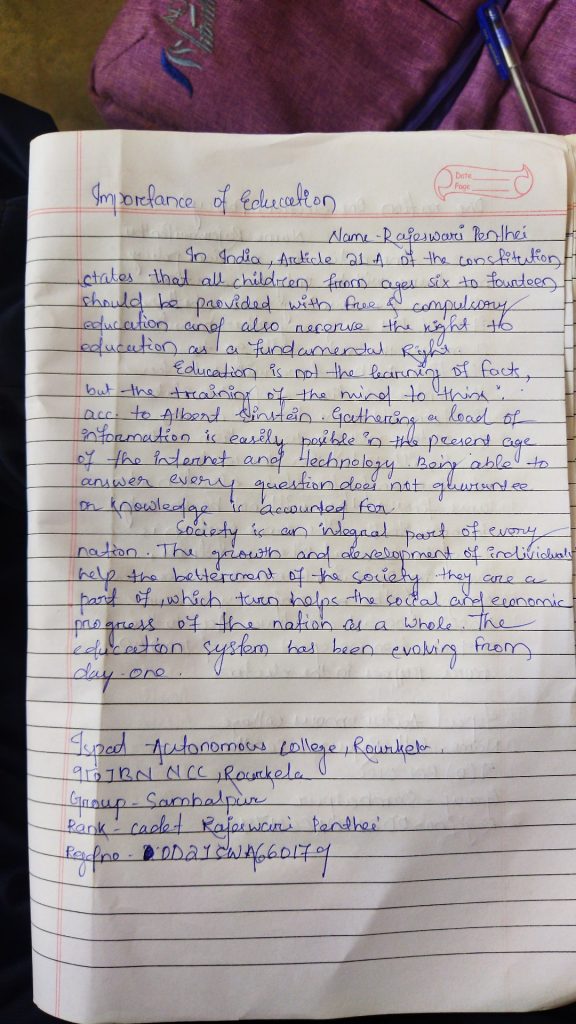 Date
Page
Importance of Education
Name - Rajeswari Penthei
In India, Article 21 A of the constitution
states that all children from ages six to fourteen
should be provided with free & compulsory
education and also reserve the right to
education as a fundamental Right.
Education is not the learning of fact,
but the training of the mind to think".
acc. to Albert Einstein. Gathering a load of
information is easily posible in the present age
of the internet and technology. Being able to
answer every question does not guarantee
or knowledge is accounted for.
Society is an integral part of every
nation. The growth and development of individuals
help the betterment of the society they are a
part of, which turn helps the social and economic
progress of the nation as a whole. The
education system has been evolving from
day-one.
Ispat Autonomous college, Rourkela.
BN NCC, Rourkela
Group - Sambalpur
Rank - cadet Rajeswari Penthei
Regd no.